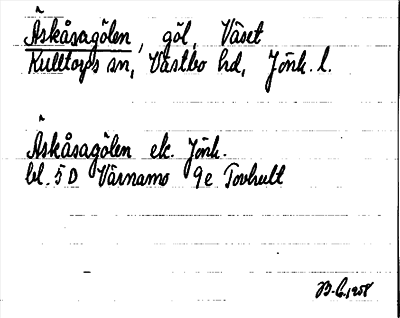 Äskåsagölen, göl, Väset
Kulltorps sn, Västbo hd, Jönk. l.
Äskåsagölen ek. Jönk.
bl. 5 D Värnamo 9e Torhult
1958